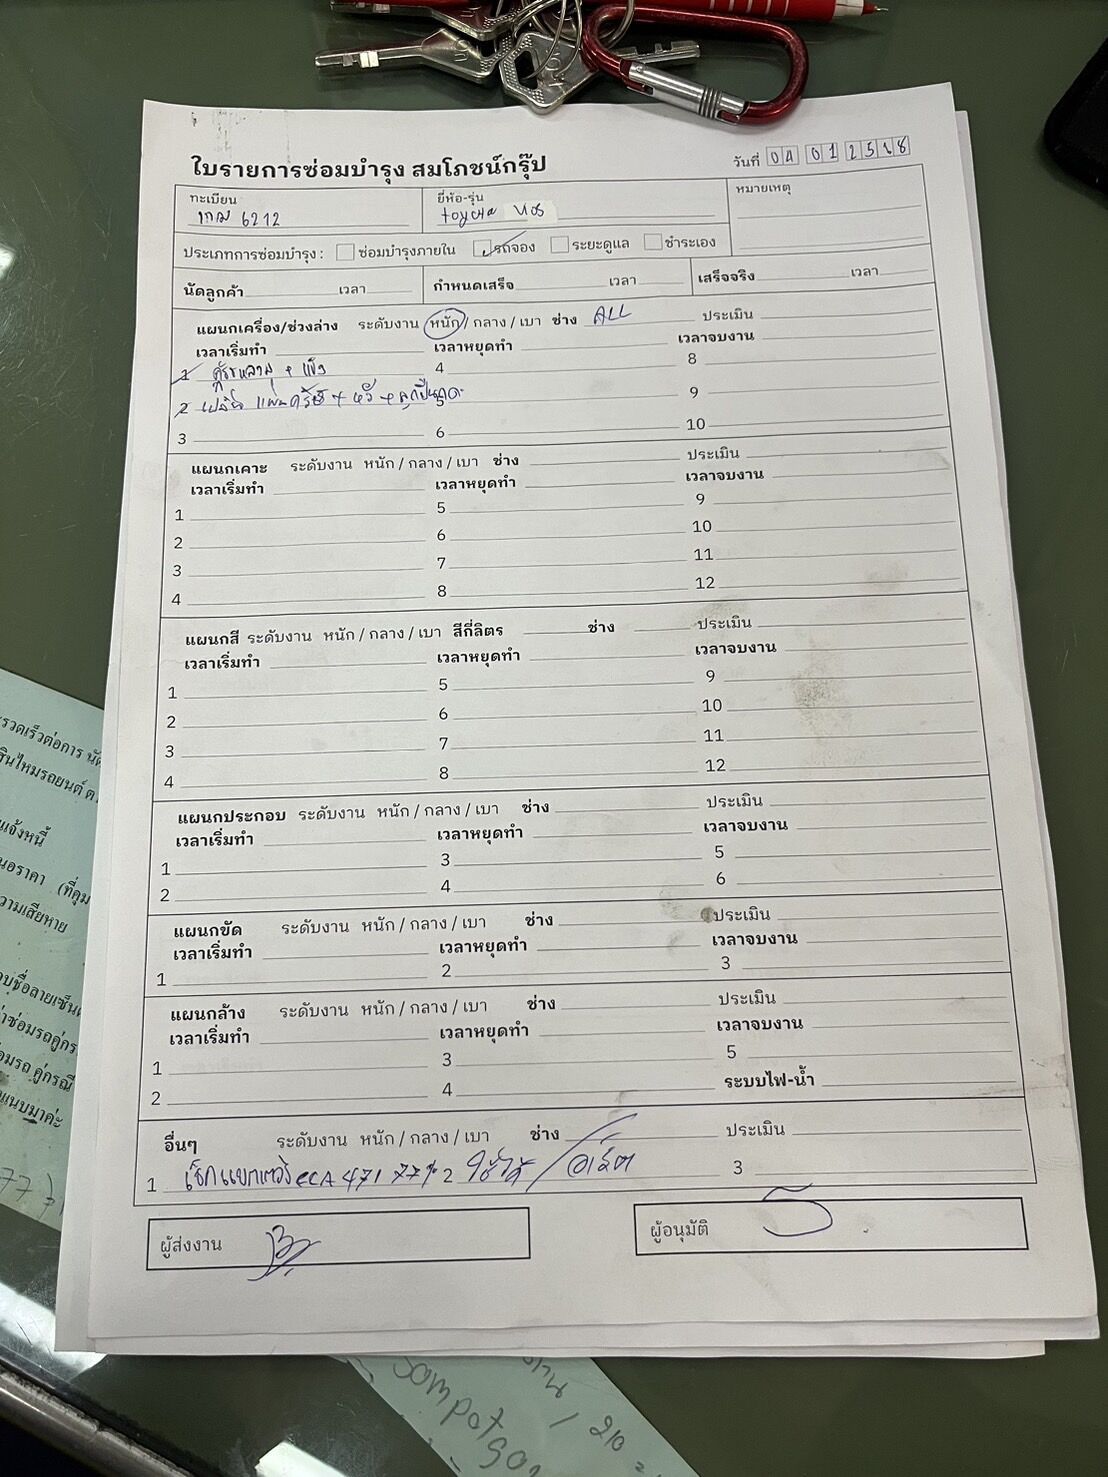 ใบรายการซ่อมบำรุง สมโภชน์กรุ๊ป
วันที่ 04 01 25
ทะเบียน
6212
ยี่ห้อ-รุ่น
toyota vios
หมายเหตุ
ประเภทการซ่อมบำรุง : ซ่อมบำรุงภายใน รถจอง ระยะดูแล ชำระเอง
นัดลูกค้า เวลา กำหนดเสร็จ เวลา เสร็จจริง เวลา
แผนกเครื่อง/ช่วงล่าง ระดับงาน หนัก / กลาง / เบา ช่าง ALL ประเมิน
เวลาเริ่มทำ เวลาหยุดทำ เวลาจบงาน
1 4 8
2 เปลี่ยน แผ่นครัช + หวี + ลูกปืนกด 5 9
3 6 10
แผนกเคาะ ระดับงาน หนัก / กลาง / เบา ช่าง ประเมิน
เวลาเริ่มทำ เวลาหยุดทำ เวลาจบงาน
1 5 9
2 6 10
3 7 11
4 8 12
แผนกสี ระดับงาน หนัก / กลาง / เบา สีกี่ลิตร ช่าง ประเมิน
เวลาเริ่มทำ เวลาหยุดทำ เวลาจบงาน
1 5 9
2 6 10
3 7 11
4 8 12
แผนกประกอบ ระดับงาน หนัก / กลาง / เบา ช่าง ประเมิน
เวลาเริ่มทำ เวลาหยุดทำ เวลาจบงาน
1 3 5
2 4 6
แผนกขัด ระดับงาน หนัก / กลาง / เบา ช่าง ประเมิน
เวลาเริ่มทำ เวลาหยุดทำ เวลาจบงาน
1 2 3
แผนกล้าง ระดับงาน หนัก / กลาง / เบา ช่าง ประเมิน
เวลาเริ่มทำ เวลาหยุดทำ เวลาจบงาน
1 3 5
2 4 ระบบไฟ-น้ำ
อื่นๆ ระดับงาน หนัก / กลาง / เบา ช่าง ประเมิน
1 เช็คแบตเตอรี่ CCA 471 77% 2 ใช้ได้ / 3
ผู้ส่งงาน
ผู้อนุมัติ
รวดเร็วต่อการ
สินไหมรถยนต์
แจ้งหนี้
นอราคา
วามเสียหาย
แนบมาค่ะ
Sompot